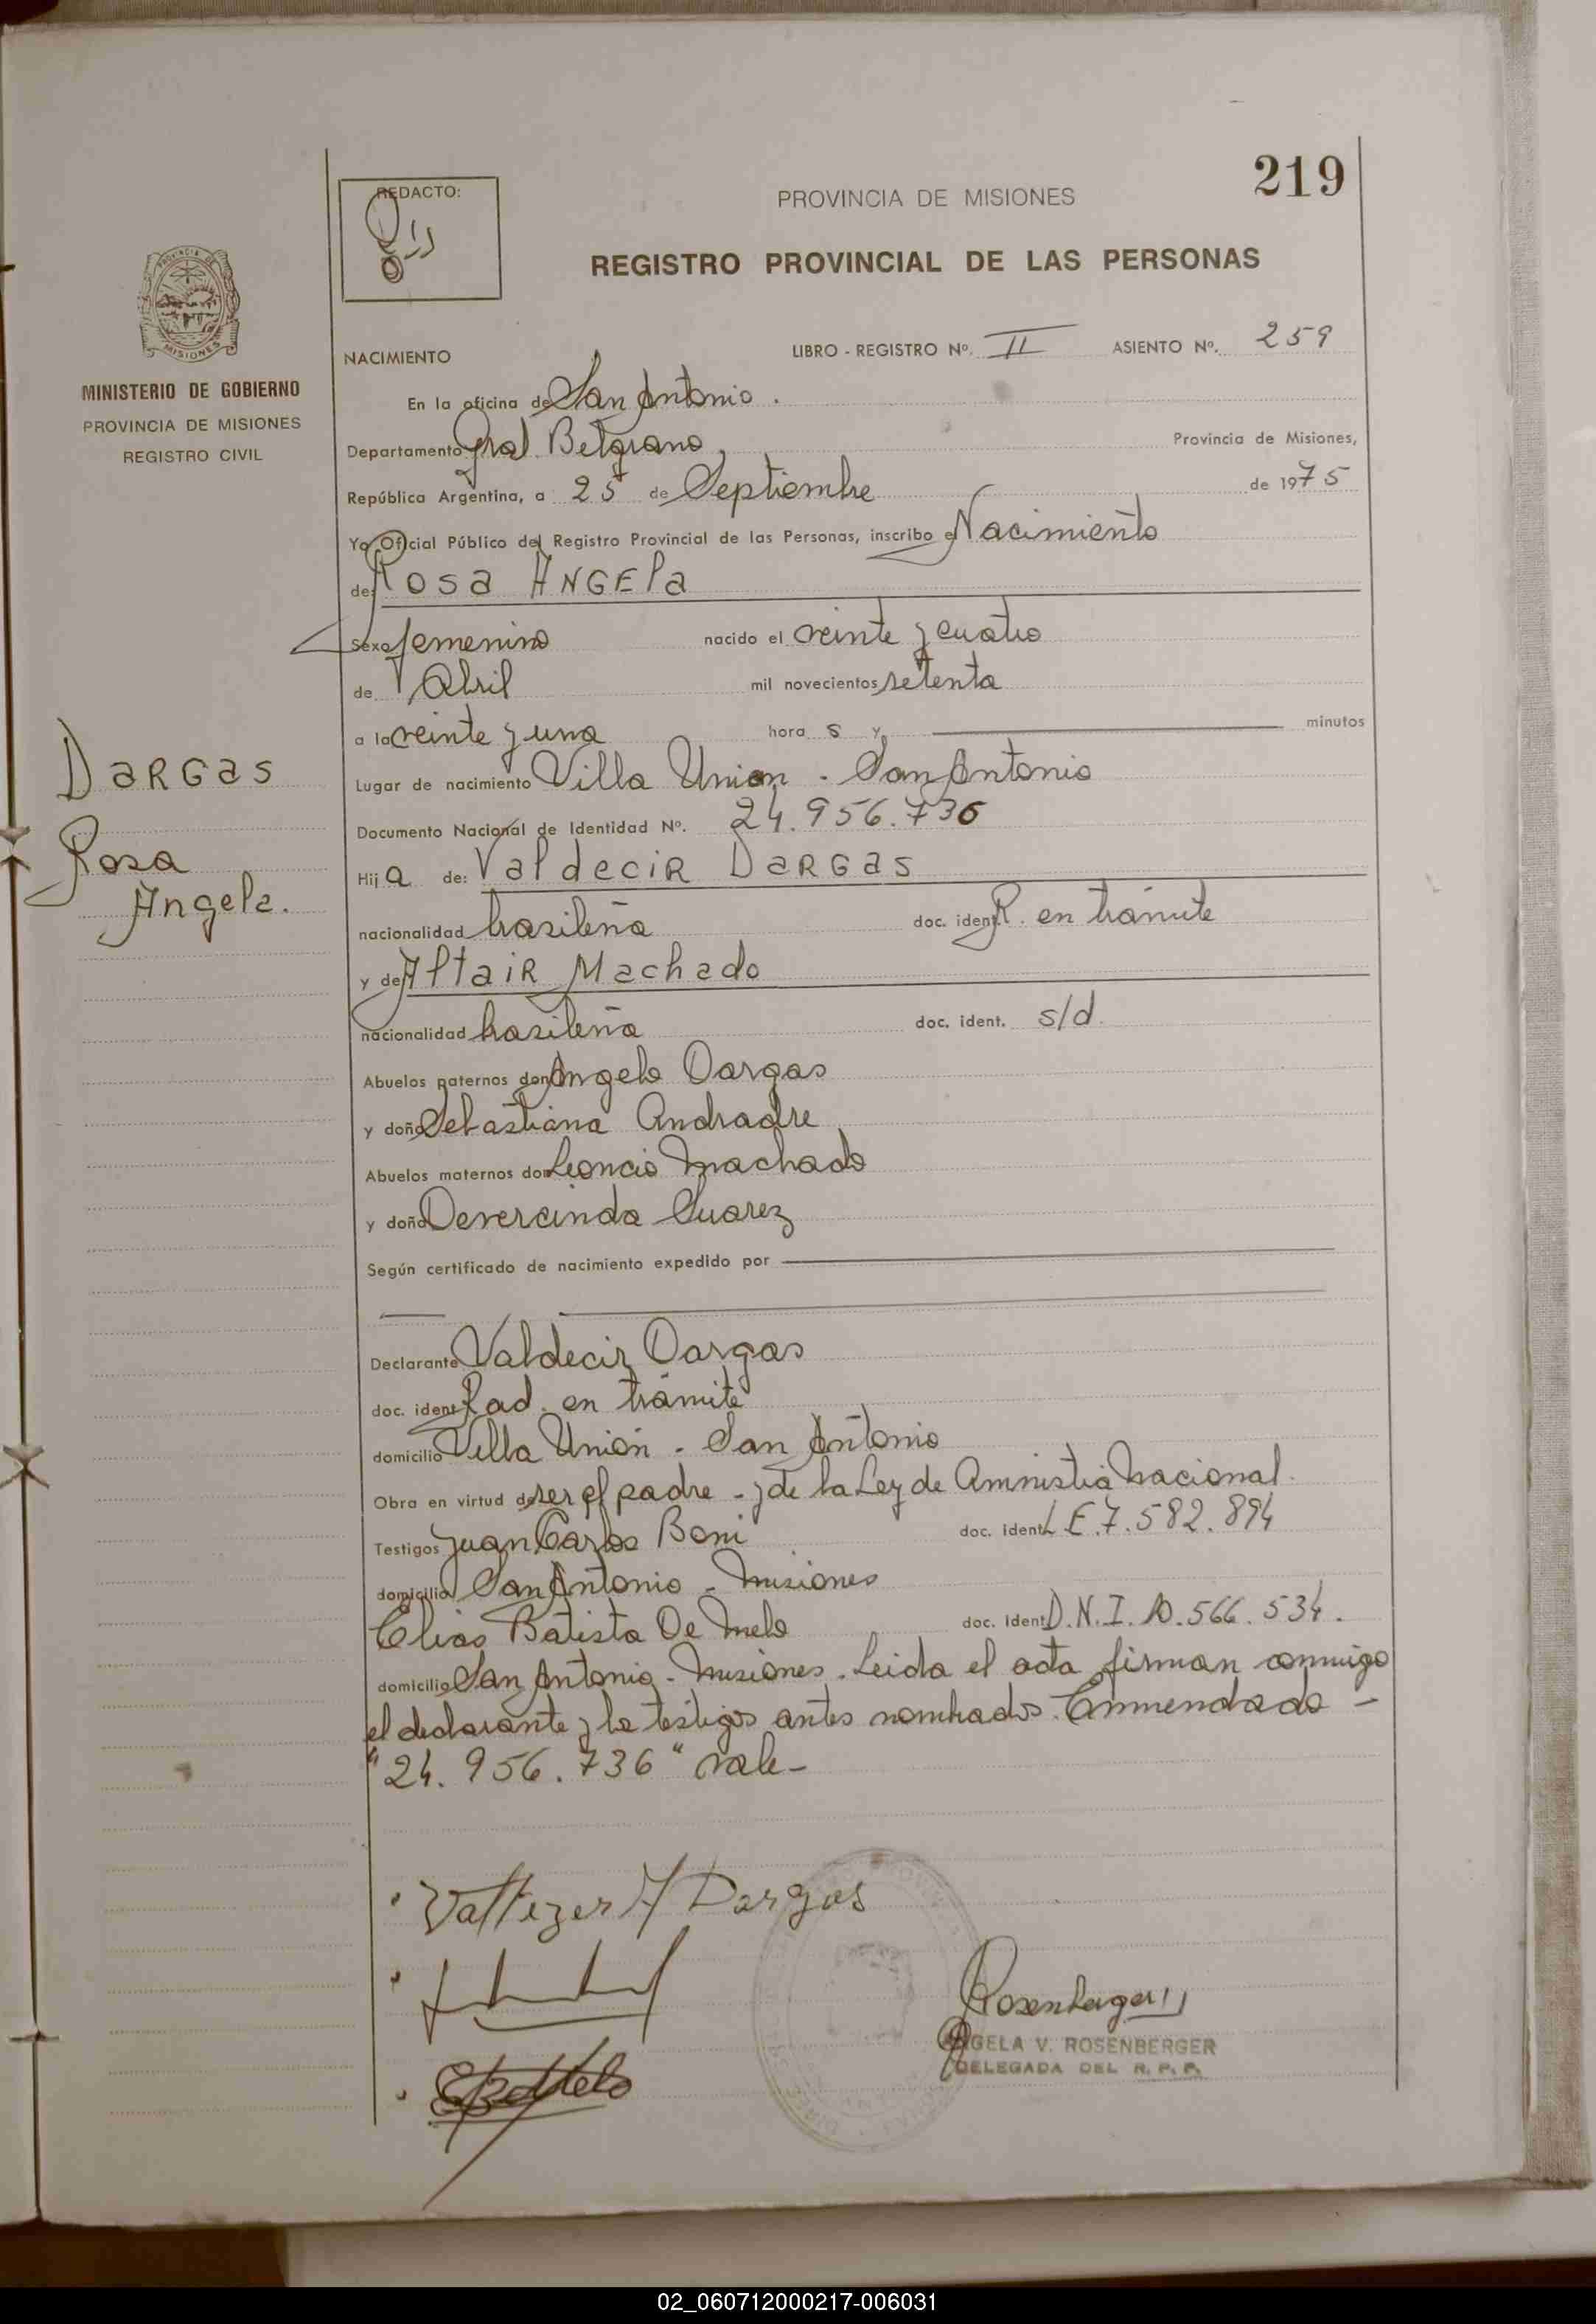 219
REDACTO:
PROVINCIA DE MISIONES
REGISTRO PROVINCIAL DE LAS PERSONAS
MINISTERIO DE GOBIERNO
PROVINCIA DE MISIONES
REGISTRO CIVIL
NACIMIENTO LIBRO - REGISTRO Nº. II ASIENTO Nº. 259
En la oficina de San Antonio.
Departamento Gral Belgrano, Provincia de Misiones,
República Argentina, a 25 de Septiembre de 1975
Yo Oficial Público del Registro Provincial de las Personas, inscribo el Nacimiento
de: Rosa ANGEla
Sexo femenino nacido el veinte y cuatro
de Abril mil novecientos setenta
a la veinte y una hora s y minutos
DaRGas
Rosa
Angela.
Lugar de nacimiento Villa Union - San Antonio
Documento Nacional de Identidad Nº. 24.956.736
Hij a de: ValdeciR DaRGas
nacionalidad brasileña doc. ident. R. en trámite
y de AltaiR Machado
nacionalidad brasileña doc. ident. s/d.
Abuelos paternos don Angelo Dargas
y doña Sebastiana Andradre
Abuelos maternos don Leoncio Machado
y doña Devercinda Suarez
Según certificado de nacimiento expedido por
Declarante Valdecir Dargas
doc. ident. Rad. en trámite
domicilio Villa Unión - San Antonio
Obra en virtud de ser el padre - y de la Ley de Amnistia Nacional.
Testigos Juan Carlos Boni doc. ident. L.E. 7.582.894
domicilio San Antonio - Misiones
Elias Batista De Melo doc. ident. D.N.I. 10.566.534.
domicilio San Antonio - Misiones. Leida el acta firman conmigo
el declarante y los testigos antes nombrados. Enmendado -
"24.956.736" vale -
Dargas
Rosenberger
ANGELA V. ROSENBERGER
DELEGADA DEL R. P. P.
02_060712000217-006031